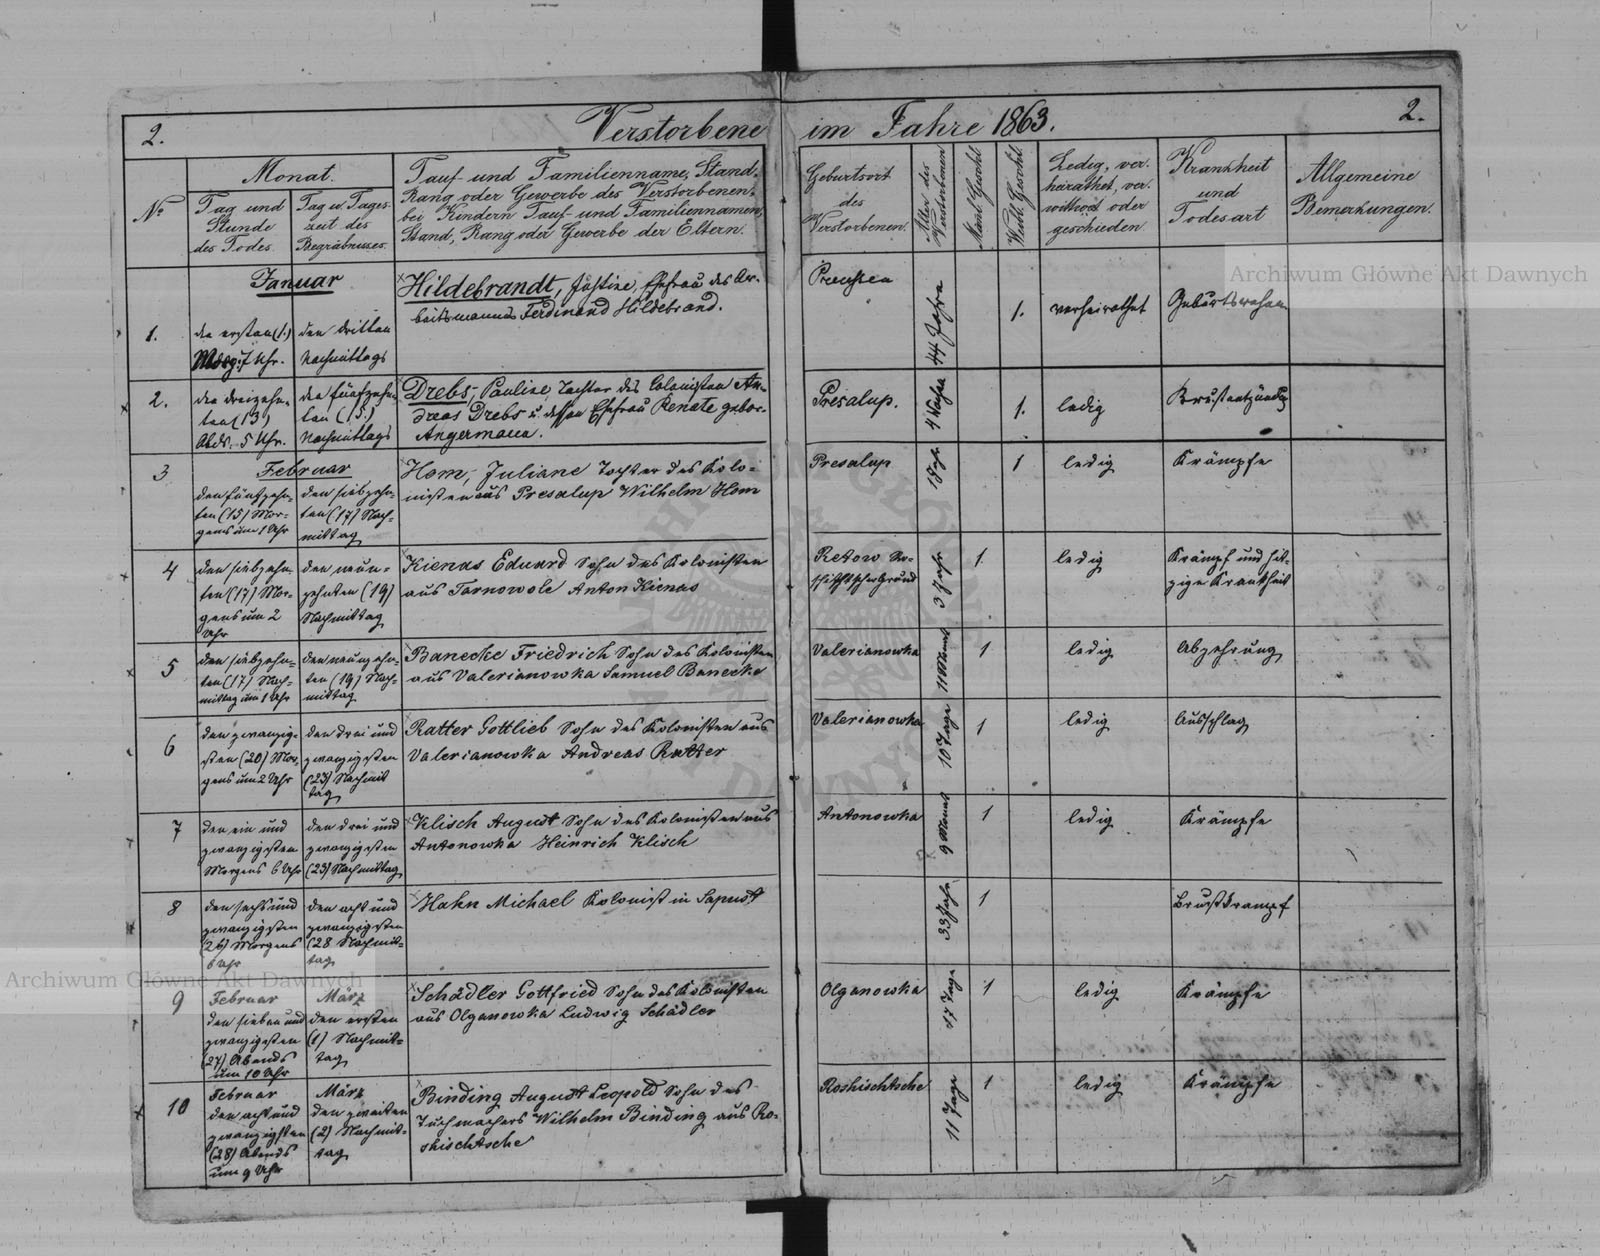 2.
Verstorbene im Jahre 1863.
2.
Monat.
No
Tag und
Stunde
des Todes.
Tag u. Tages-
zeit des
Begräbnisses.
Tauf und Familienname, Stand,
Rang oder Gewerbe des Verstorbenen,
bei Kindern Tauf- und Familiennamen,
Stand, Rang oder Gewerbe der Eltern.
Geburtsort
des
Verstorbenen.
Alter des
Verstorbenen
Männl. Geschl.
Weibl. Geschl.
Ledig, ver-
heirathet, ver-
wittwet oder
geschieden
Krankheit
und
Todesart
Allgemeine
Bemerkungen.
Januar
1.
den ersten (1.)
Morg. 7 Uhr.
den dritten
Nachmittags
Hildebrandt, Justine, Ehefrau des Ar-
beitsmanns Ferdinand Hildebrand.
Preußen
44 Jahre
1.
verheirathet
Geburtswehen
2.
den dreizehn-
ten (13)
Abds. 5 Uhr.
den fünfzehn-
ten (15.)
Nachmittags
Drebs, Pauline, Tochter des Colonisten An-
dreas Drebs u. dessen Ehefrau Renate gebor.
Angermann.
Presalup.
4 Wochen
1.
ledig
Brustentzündg
3
Februar
den fünfzehn-
ten (15) Mor-
gens um 1 Uhr
den siebzehn-
ten (17) Nach-
mittag
Hom, Juliane Tochter des Kolo-
nisten aus Presalup Wilhelm Hom
Presalup
1
ledig
Krämpfe
4
den siebzehn-
ten (17) Mor-
gens um 2
Uhr
den neun-
zehnten (19)
Nachmittag
Kienas Eduard Sohn des Kolonisten
aus Tarnowole Anton Kienas
Retow Ro-
schischtscher Grund
3 Jahr
1.
ledig
Krämpf und hit-
zige Krankheit
5
den siebzehn-
ten (17) Nach-
mittag um 1 Uhr
den neunzehn-
ten (19) Nach-
mittag
Banecke Friedrich Sohn des Kolonisten
aus Valerianowka Samuel Banecke
Valerianowka
11 Monat
1
ledig
Abzehrung
6
den zwanzig-
sten (20) Mor-
gens um 2 Uhr
den drei und
zwanzigsten
(23) Nachmit
tag
Ratter Gottlieb Sohn des Kolonisten aus
Valerianowka Andreas Ratter
Valerianowka
10 Tage
1
ledig
Ausschlag
7
den ein und
zwanzigsten
Morgens 6 Uhr
den drei und
zwanzigsten
(23) Nachmittag
Klisch August Sohn des Kolonisten aus
Antonowka Heinrich Klisch
Antonowka
9 Monat
1
ledig
Krämpfe
8
den sechs und
zwanzigsten
(26) Morgens
6 Uhr
den acht und
zwanzigsten
(28 Nachmit-
tag
Hahn Michael Kolonist in Sapust
33 Jahr
1
Brustkrampf
9
Februar
den sieben und
zwanzigsten
(27) Abends
um 10 Uhr
März
den ersten
(1) Nachmit-
tag
Schädler Gottfried Sohn des Kolonisten
aus Olganowka Ludwig Schädler
Olganowka
17 Tage
1
ledig
Krämpfe
10
Februar
den acht und
zwanzigsten
(28) Abends
um 9 Uhr
März
den zweiten
(2) Nachmit-
tag
Binding August Leopold Sohn des
Tuchmachers Wilhelm Binding aus Ro-
shischtsche
Roshischtsche
11 Tage
1
ledig
Krämpfe
Archiwum Główne Akt Dawnych
Archiwum Główne Akt Dawnych